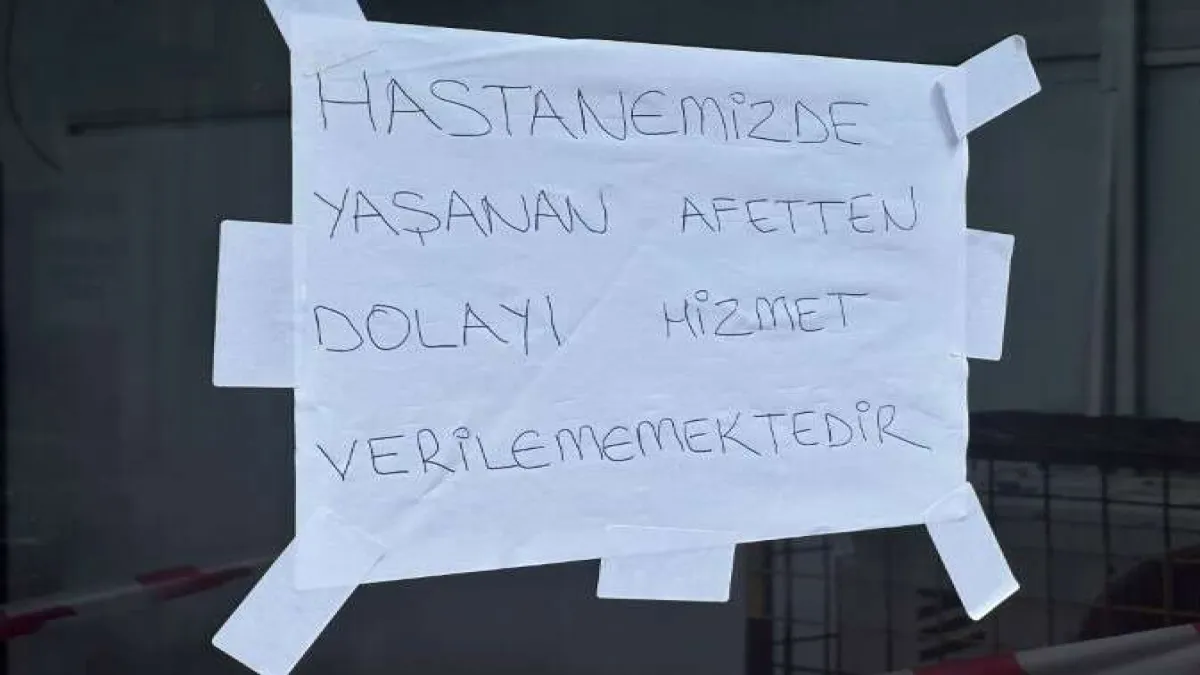 HASTANEMİZDE
YAŞANAN AFETTEN
DOLAYI HİZMET
VERİLEMEMEKTEDİR